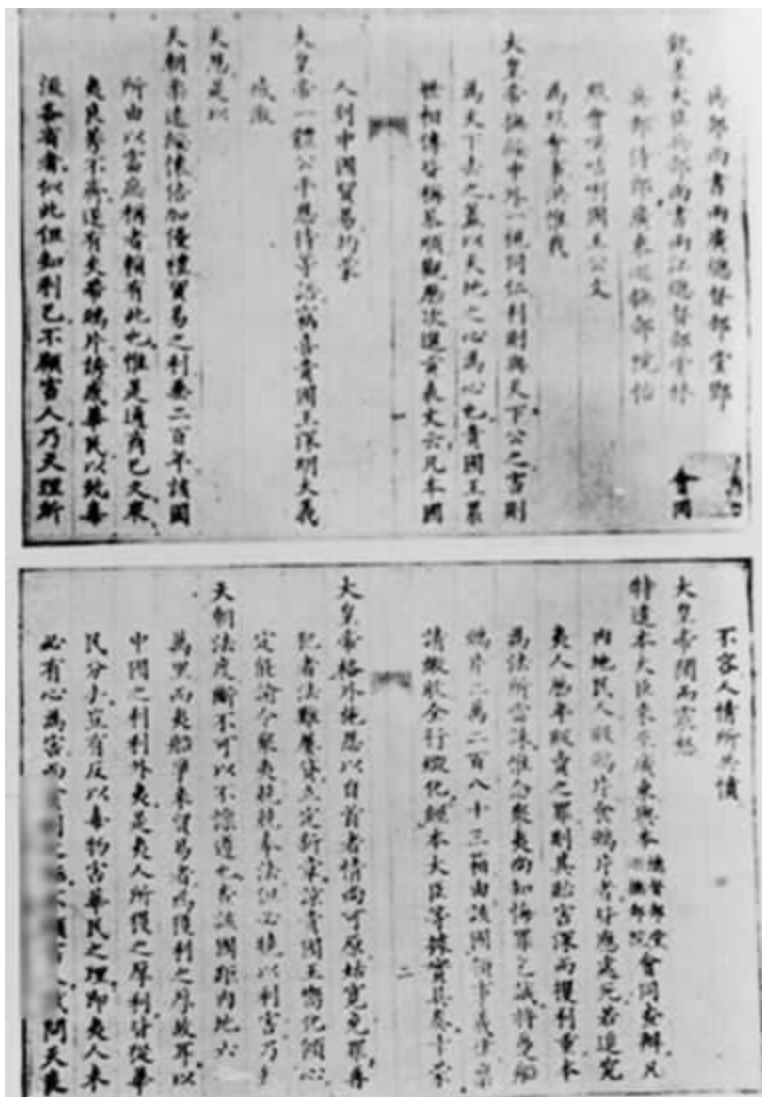 兵部尚書兩廣總督部堂鄧
欽差大臣兵部尚書兩江總督部堂林 會同
兵部侍郎廣東巡撫部院怡
照會𠸄咭唎國王公文
為照會事洪惟我
大皇帝撫綏中外一視同仁利則與天下公之害則
為天下去之蓋以天地之心為心也貴國王累
世相傳皆稱恭順觀歷次進貢表文云凡本國
人到中國貿易均蒙
大皇帝一體公平恩待等語竊喜貴國王深明大義
感激
天恩是以
天朝柔遠綏懷倍加優禮貿易之利垂二百年該國
所由以富庶稱者賴有此也惟是通商已久衆
夷良莠不齊遂有夾帶鴉片誘惑華民以致毒
流各省者似此但知利己不顧害人乃天理所
不容人情所共憤
大皇帝聞而震怒
特遣本大臣來至廣東與本總督部堂巡撫部院會同查辦凡
內地民人販鴉片食鴉片者皆應處死若追究
夷人歷年販賣之罪則其貽害深而攫利重本
為法所當誅惟念衆夷尚知悔罪乞誠將躉船
鴉片二萬二百八十三箱由該國領事義律稟
請繳收全行燬化經本大臣等據實具奏幸蒙
一
二
大皇帝格外施恩以自首者情尚可原姑寬免罪再
犯者法難屢貸立定新章諒貴國王嚮化傾心
定能諭令衆夷兢兢奉法但必曉以利害乃知
天朝法度斷不可以不懍遵也查該國距內地六
萬里而夷船爭來貿易者為獲利之厚故耳以
中國之利利外夷是夷人所獲之厚利皆從華
民分去豈有反以毒物害華民之理即夷人未
必有心為害而 不顧害人 問天良